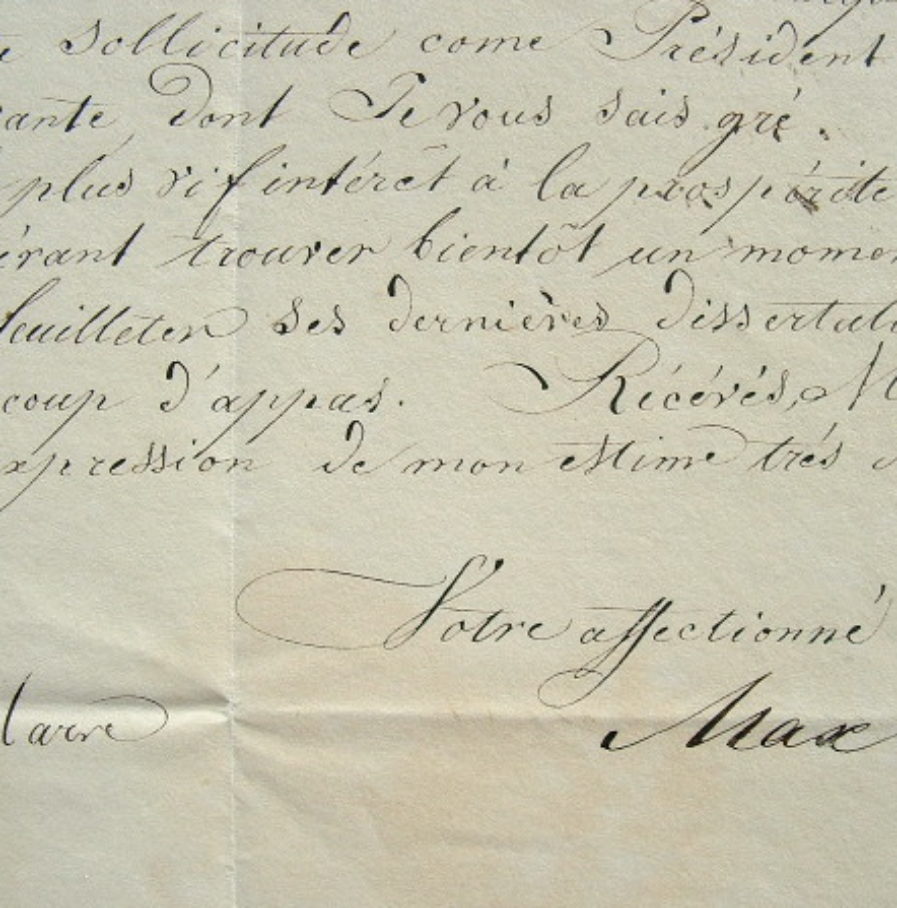 e sollicitude come Président
ante, dont Je vous sais gré.
plus vif intérêt à la prospérité
érant trouver bientôt un momen
feuilleter ses dernières dissertati
coup d'appas. Récévés, M
xpression de mon estime trés
Votre affectionné
Max